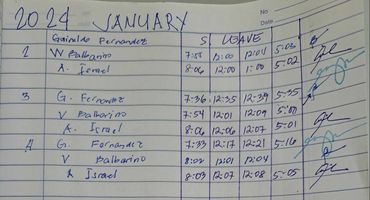 No
Date
2024 JANUARY
S LEAVE
Fernandez
2 W Balbarino 7:57 12:00 12:01 5:03
A. Israel 8:06 12:00 1:00 5:02
3 G. Fernandez 7:36 12:35 12:39 5:35
V Balbarino 7:54 12:01 12:09
A. Israel 8:06 12:06 12:07 5:01
4 G. Fernandez 7:33 12:17 12:21 5:16
V Balbarino 8:02 12:01 12:04
A Israel 8:03 12:07 12:08 5:05